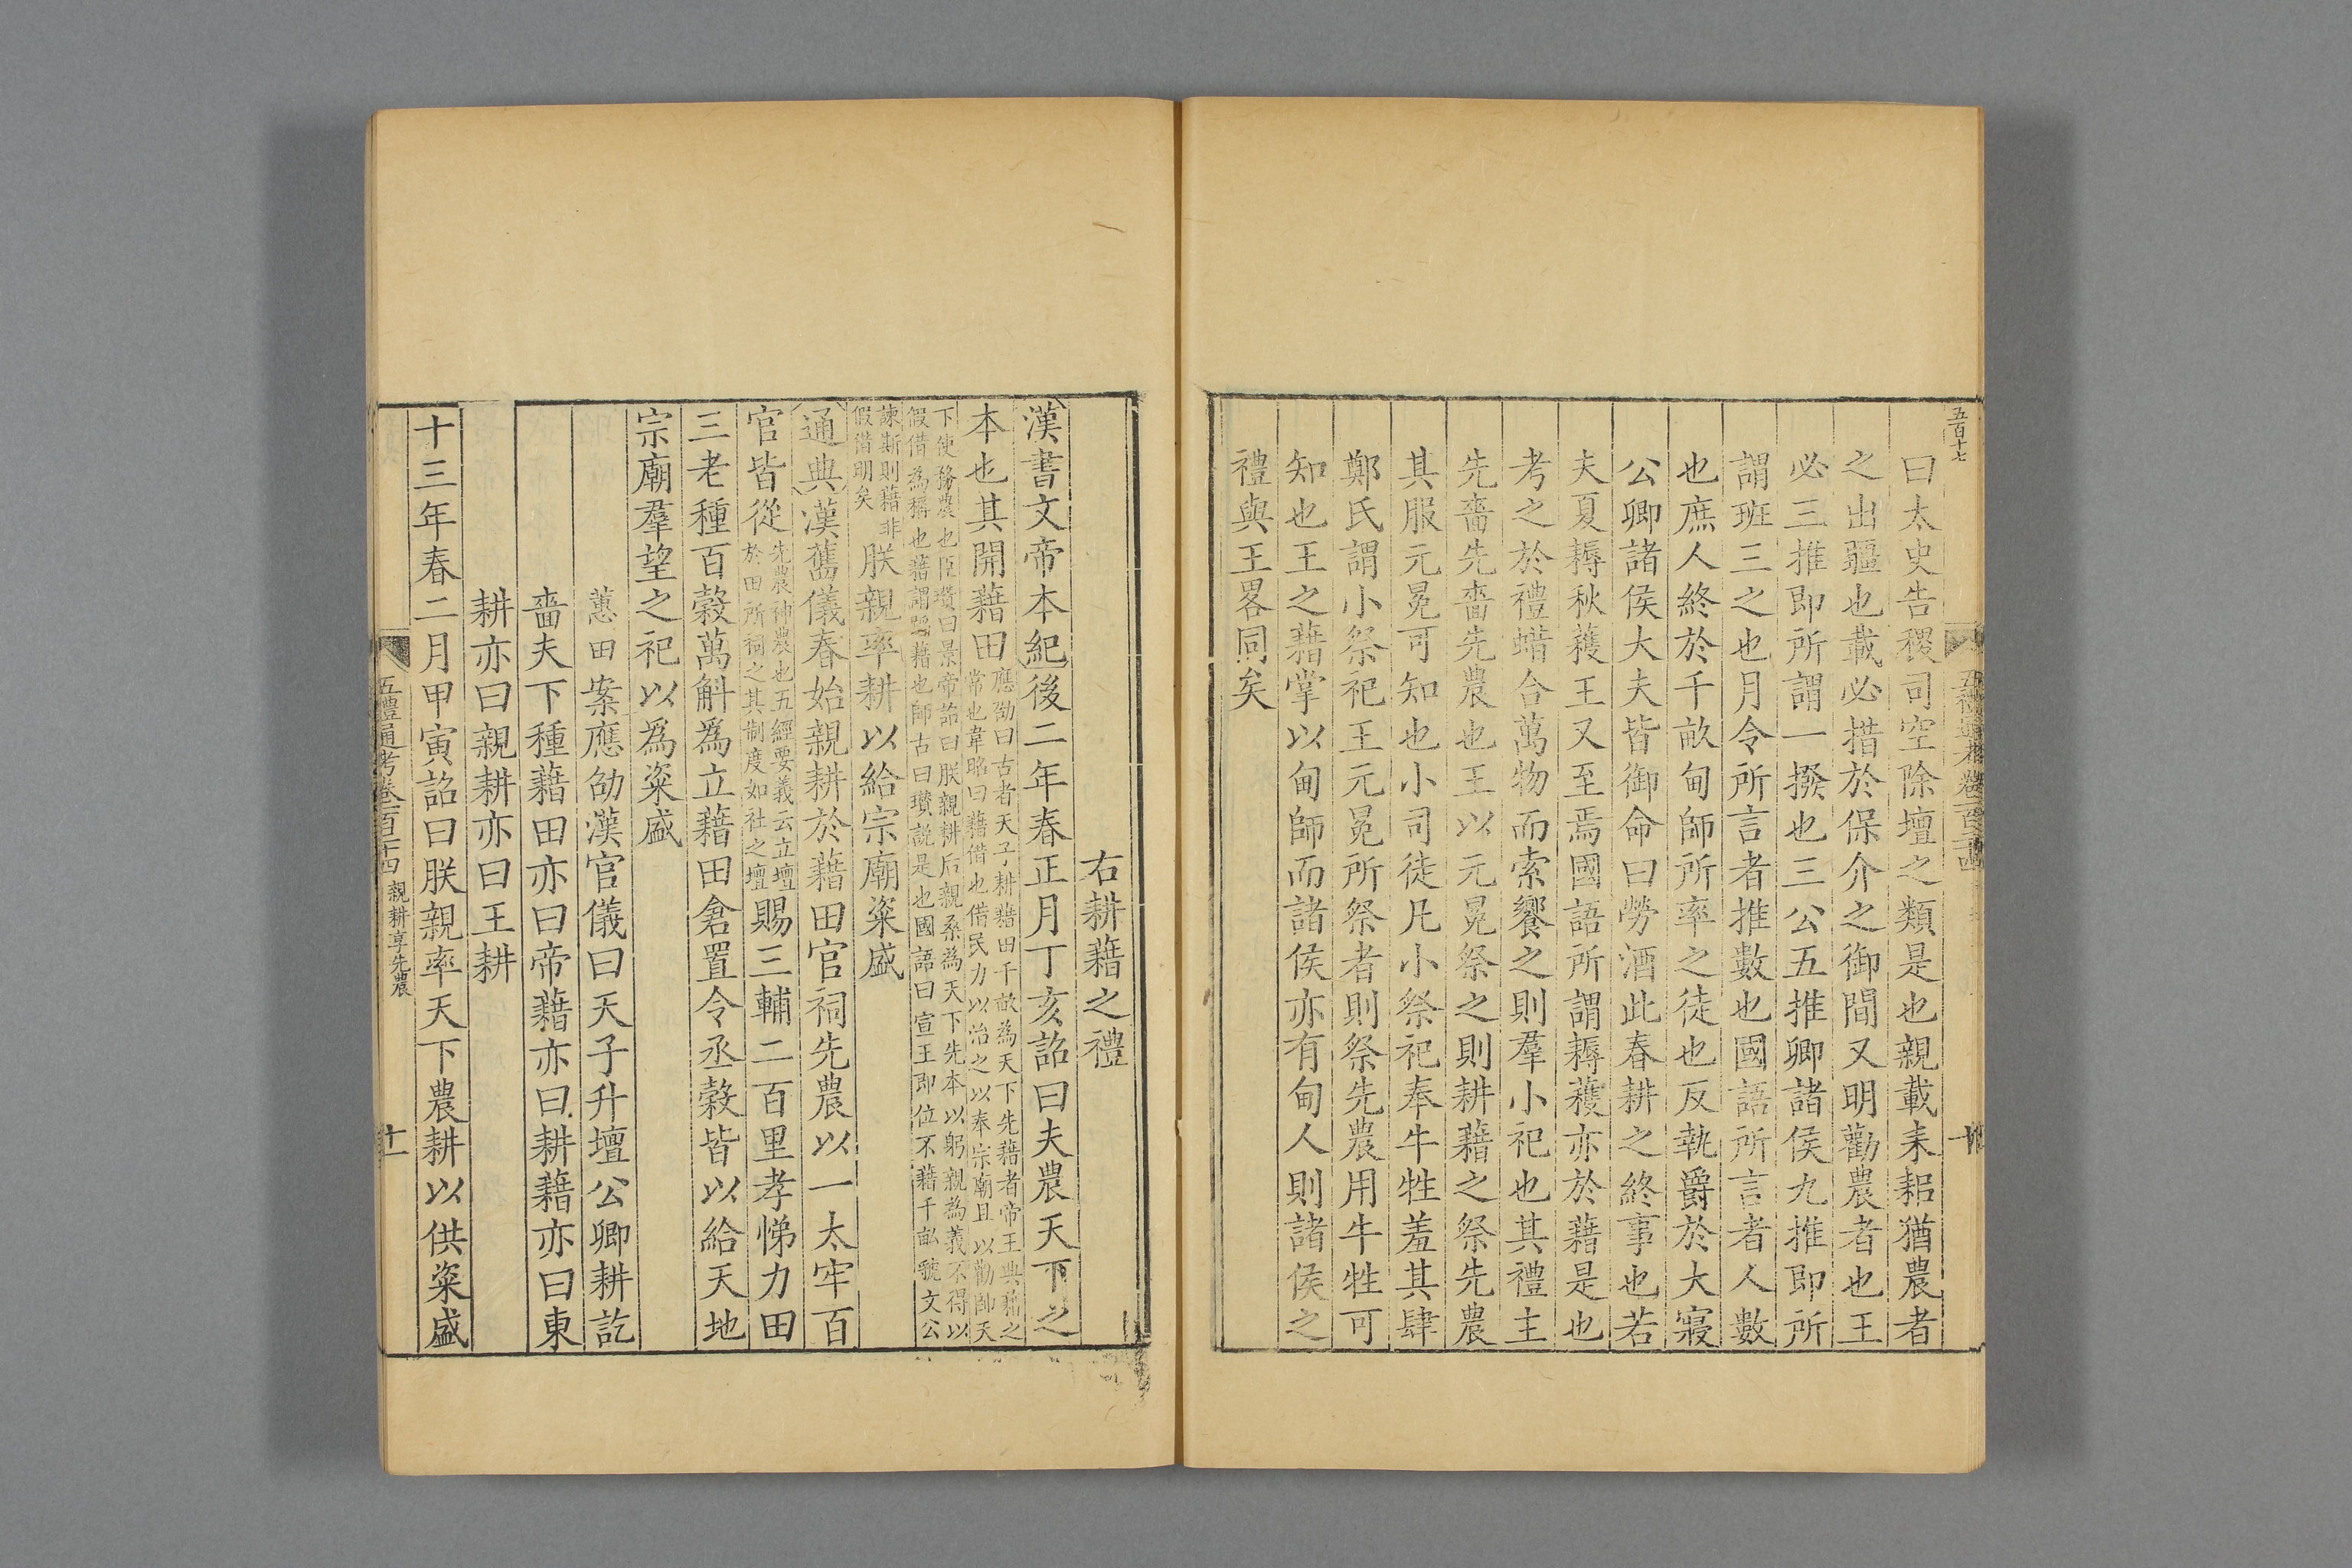 五百十七
曰太史告稷司空除壇之類是也親載耒耜猶農者
之出疆也載必措於保介之御間又明勸農者也王
必三推即所謂一撥也三公五推卿諸侯九推即所
謂班三之也月令所言者推數也國語所言者人數
也庶人終於千畝甸師所率之徒也反執爵於大寢
公卿諸侯大夫皆御命曰勞酒此春耕之終事也若
夫夏耨秋穫王又至焉國語所謂耨穫亦於藉是也
考之於禮蜡合萬物而索饗之則羣小祀也其禮主
先嗇先嗇先農也王以元冕祭之則耕藉之祭先農
其服元冕可知也小司徒凡小祭祀奉牛牲羞其肆
鄭氏謂小祭祀王元冕所祭者則祭先農用牛牲可
知也王之藉掌以甸師而諸侯亦有甸人則諸侯之
禮與王畧同矣
右耕藉之禮
漢書文帝本紀後二年春正月丁亥詔曰夫農天下之
本也其開藉田應劭曰古者天子耕藉田千畝為天下先藉者帝王典藉之
常也韋昭曰藉借也借民力以治之以奉宗廟且以勸帥天
下使務農也臣瓚曰景帝詔曰朕親耕后親桑為天下先本以躬親為義不得以
假借為稱也藉謂蹈藉也師古曰瓚説是也國語曰宣王即位不藉千畝虢文公
諫斯則藉非
假借明矣朕親率耕以給宗廟粢盛
通典漢舊儀春始親耕於藉田官祠先農以一太牢百
官皆從先農神農也五經要義云立壇
於田所祠之其制度如社之壇賜三輔二百里孝悌力田
三老種百穀萬斛爲立藉田倉置令丞穀皆以給天地
宗廟羣望之祀以爲粢盛
蕙田案應劭漢官儀曰天子升壇公卿耕訖
嗇夫下種藉田亦曰帝藉亦曰耕藉亦曰東
耕亦曰親耕亦曰王耕
十三年春二月甲寅詔曰朕親率天下農耕以供粢盛
五禮通考卷一百二十四 親耕享先農
十一